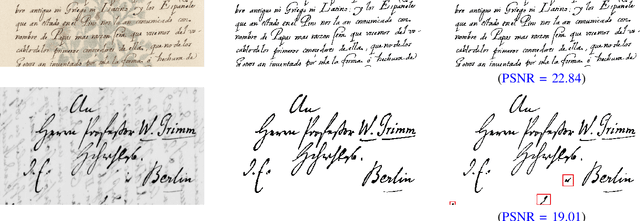 bre antiguo ni Griego ni Latino; y los Españoles
que an estado en el Piru nos la an comunicado con
nombre de Papas mas razon sera que usemos del vo-
cablo de los primeros conocedores de ella, que no de los
an inventado por sola la forma, o hechura de
bre antiguo ni Griego ni Latino; y los Españoles
que an estado en el Piru nos la an comunicado con
nombre de Papas mas razon sera que usemos del vo-
cablo de los primeros conocedores de ella, que no de los
an inventado por sola la forma, o hechura de
bre antiguo ni Griego ni Latino; y los Españoles
que an estado en el Piru nos la an comunicado con
nombre de Papas mas razon sera que usemos del vo-
cablo de los primeros conocedores de ella, que no de los
an inventado por sola la forma, o hechura de
(PSNR = 22.84)
An
Herrn Professor W. Grimm
Berlin
An
Herrn Professor W. Grimm
Berlin
An
Herrn Professor W. Grimm
Berlin
(PSNR = 19.01)